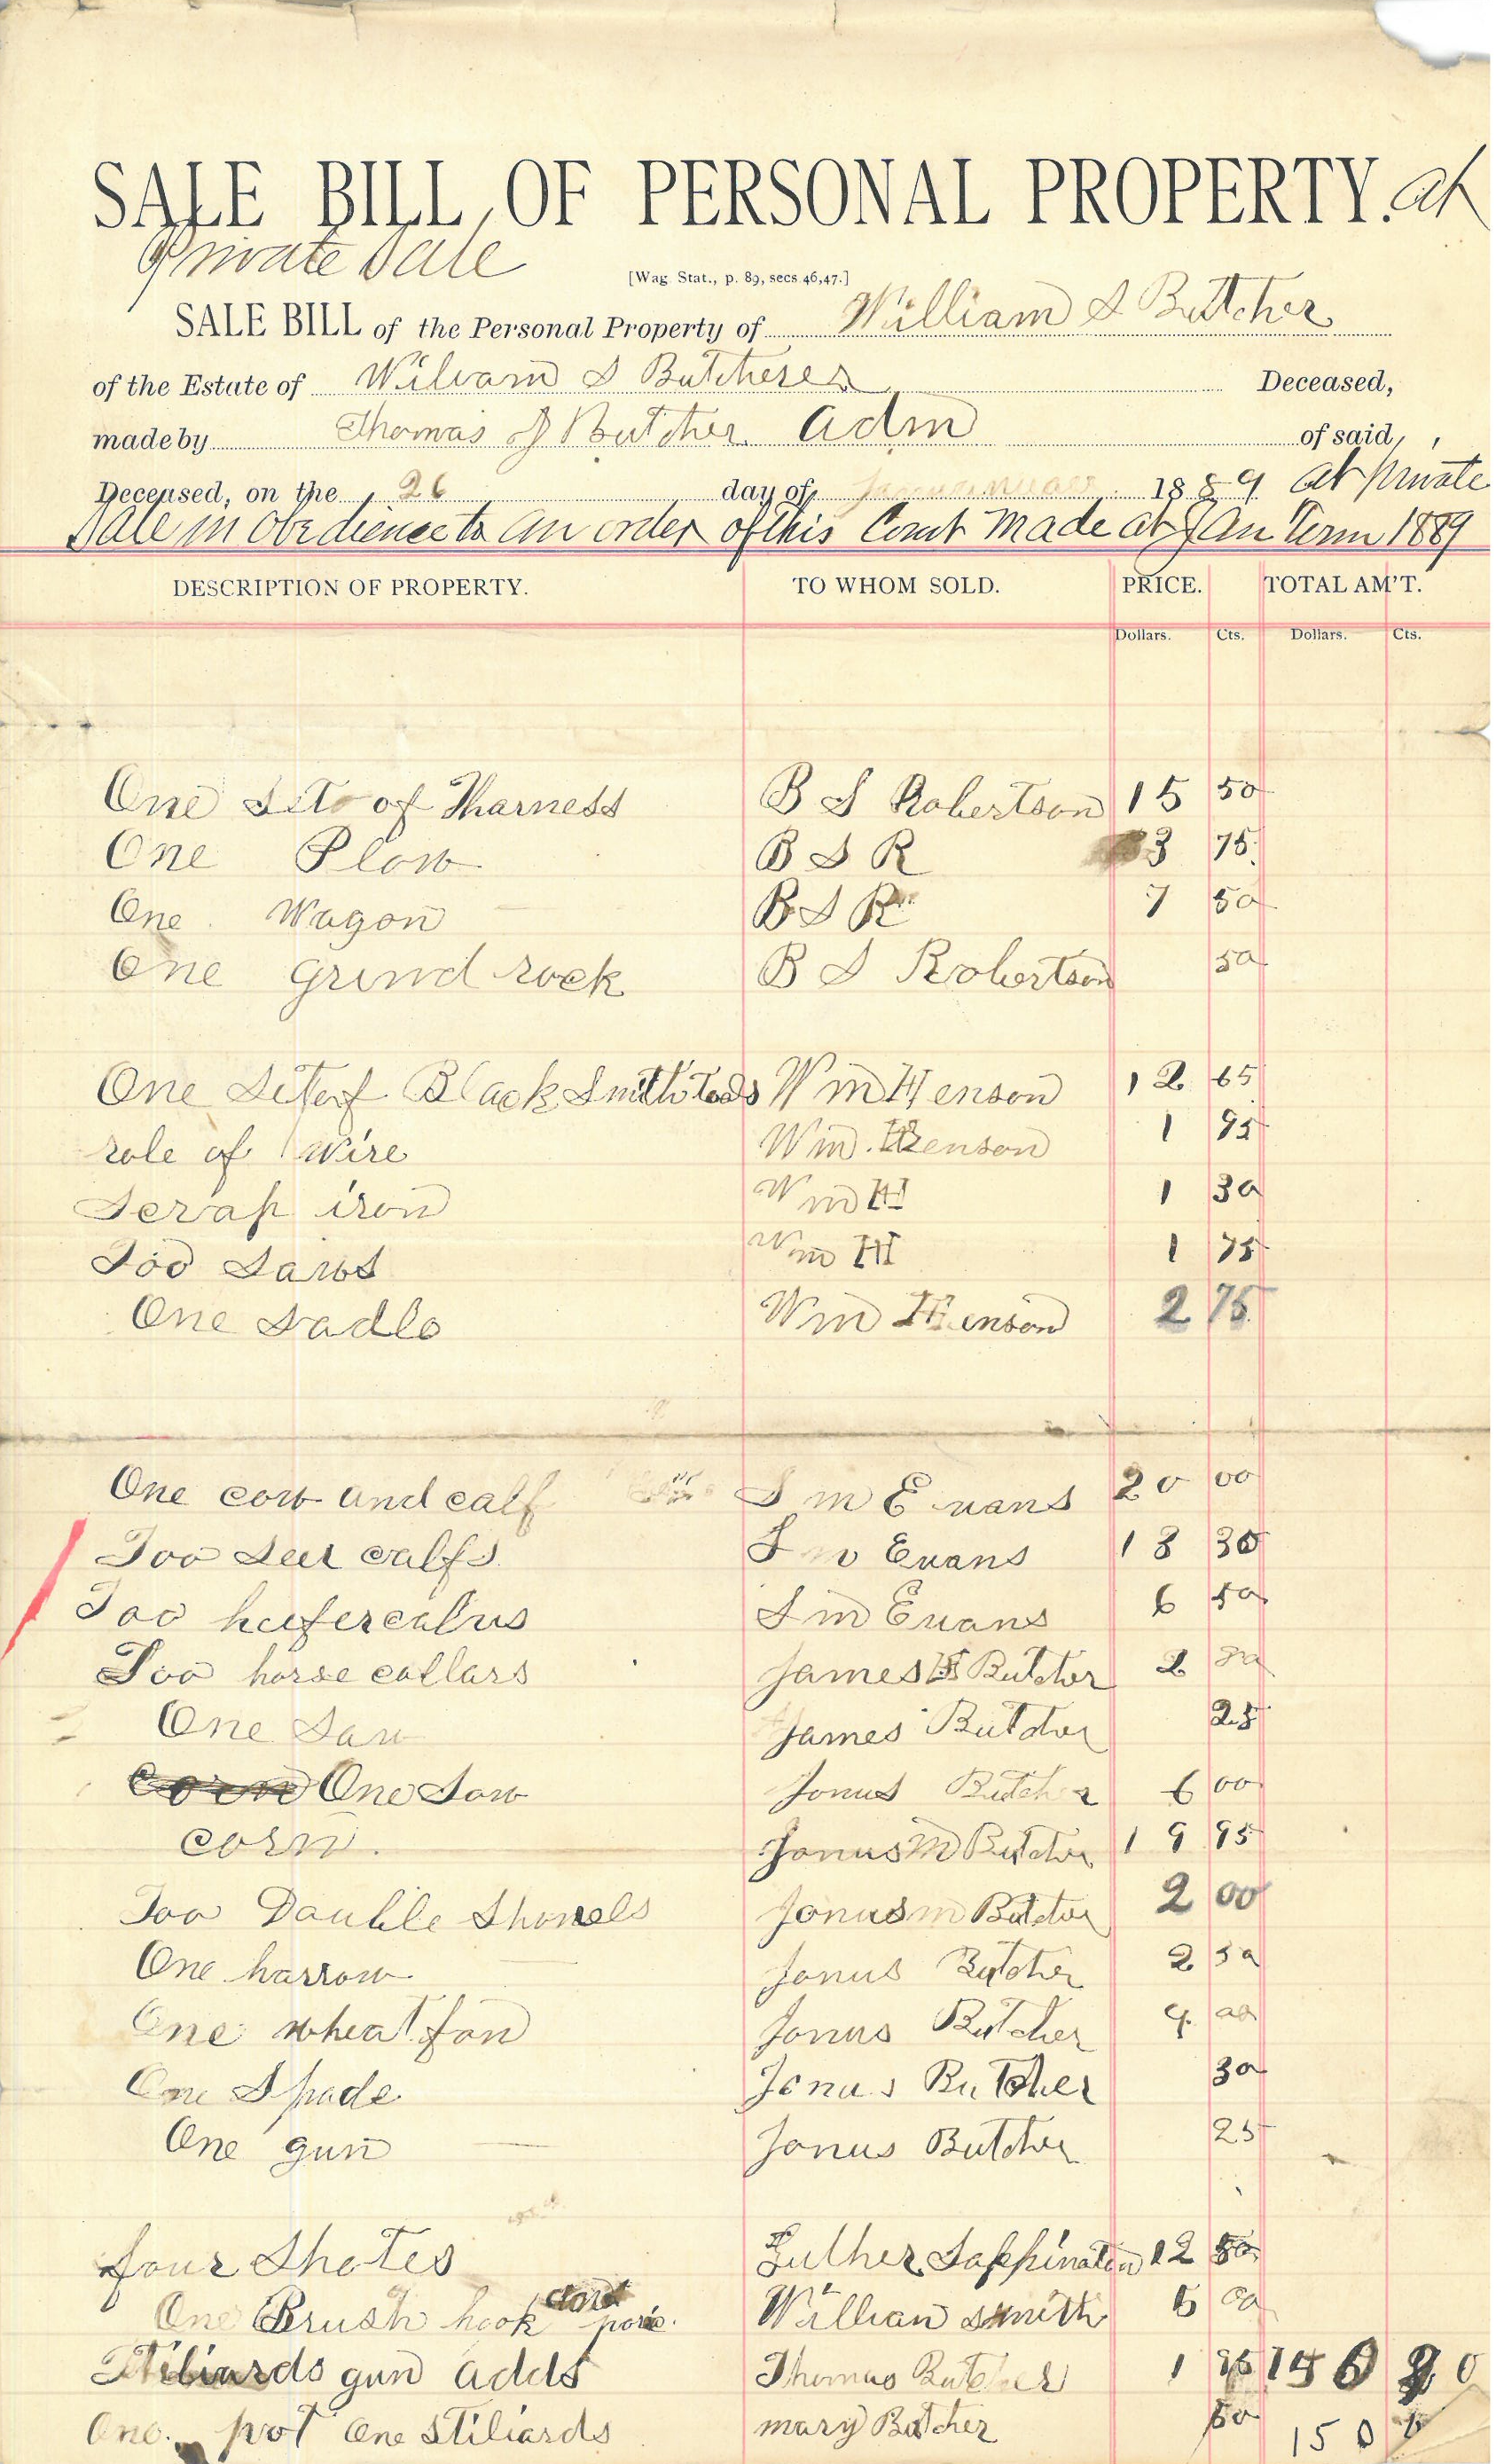 SALE BILL OF PERSONAL PROPERTY. at
Private Sale
[Wag. Stat., p. 89, secs. 46, 47.]
SALE BILL of the Personal Property of William S Buttcher
of the Estate of William S Butcheres Deceased,
made by Thomas J Butcher adm of said
Deceased, on the 26 day of 1889 at private
Sale in obedience to an order of this Court made at Jan Term 1889
DESCRIPTION OF PROPERTY. TO WHOM SOLD. PRICE. TOTAL AM'T.
Dollars. Cts. Dollars. Cts.
One Set of Tharness B S Robertson 15 50
One Plow B S R 3 75
One Wagon B S R 7 50
One Grind rock B S Robertson 50
One Set of Black Smith Tools Wm Henson 12 65
role of wire Wm. Henson 1 95
Scrap iron Wm H 1 30
Too Saws Wm H 1 75
One Sadle Wm Henson 2 75
One cow and calf S m Evans 20 00
Too calfs S m Evans 13 30
Too heifer calvus S m Evans 6 50
Too horse collars James Butcher 2
One Saw James Butcher 25
One Sow Jonus Butcher 6 00
corn. Jonus M Butcher 19 95
Too Double Shovels Jonus m Butcher 2 00
One harrow Jonus Butcher 2 50
One wheat fan Jonus Butcher 4 00
One Spade Jonus Butcher 30
One gun Jonus Butcher 25
four Shotes Luther Sappinaton 12 50
One Brush hook William Smith 5 00
Stiliards gun adds Thomas Butcher 1 150
One pot One Stiliards mary Butcher 50 150